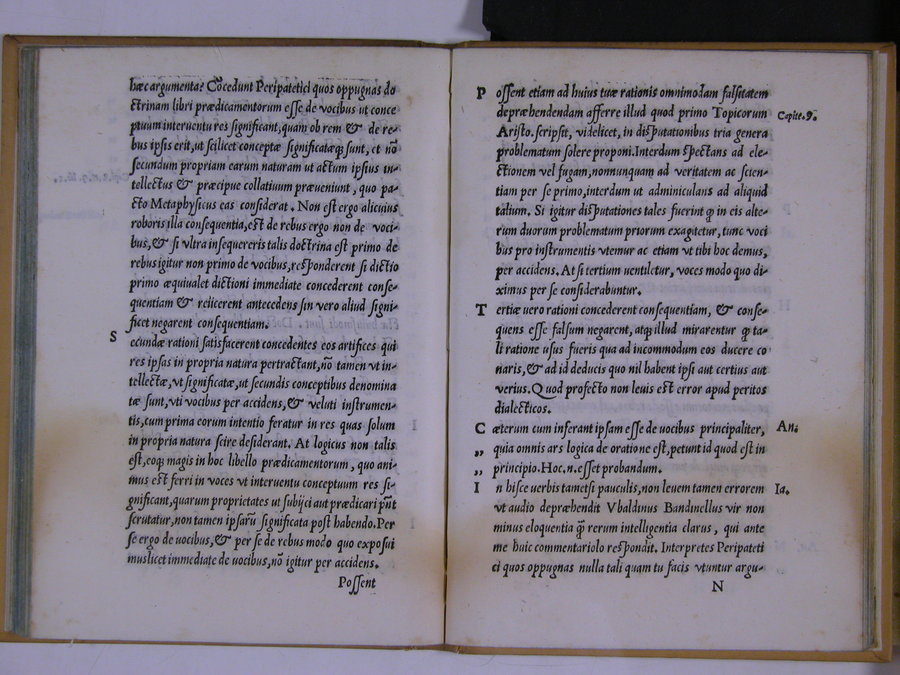 hæc argumenta? Cõcedunt Peripatetici quos oppugnas do
ctrinam libri prædicamentorum esse de vocibus ut conce
ptuum interuentu res significant, quam ob rem & de re-
bus ipsis erit, ut scilicet conceptæ significatæq; sunt, et nõ
secundum propriam earum naturam ut actum ipsius in-
tellectus & præcipue collatiuum præueniunt, quo pa-
cto Metaphysicus eas considerat. Non est ergo alicuius
roboris illa consequentia, est de rebus ergo non de voci-
bus, & si vltra insequereris talis doctrina est primo de
rebus igitur non primo de vocibus, responderent si dictio
primo æquiualet dictioni immediate concederent conse-
quentiam & reijcerent antecedens sin vero aliud signi-
ficet negarent consequentiam.
S ecundæ rationi satisfacerent concedentes eos artifices qui
res ipsas in propria natura pertractant, nõ tamen vt in-
tellectæ, vt significatæ, ut secundis conceptibus denomina
tæ sunt, vti vocibus per accidens, & veluti instrumen-
tis, cum prima eorum intentio feratur in res quas solum
in propria natura scire desiderant. At logicus non talis
est, eoq; magis in hoc libello prædicamentorum, quo ani-
mus est ferri in voces vt interuentu conceptuum res si-
gnificant, quarum proprietates ut subijci aut prædicari pñt
scrutatur, non tamen ipsarũ significata post habendo. Per
se ergo de uocibus, & per se de rebus modo quo exposui
mus licet immediate de uocibus, nõ igitur per accidens.
Possent
P ossent etiam ad huius tuæ rationis omnimodam falsitatem
depræhendendam afferre illud quod primo Topicorum
Capite. 9.
Aristo. scripsit, videlicet, in disputationibus tria genera
problematum solere proponi. Interdum spectans ad ele-
ctionem vel fugam, nonnunquam ad veritatem ac scien-
tiam per se primo, interdum ut adminiculans ad aliquid
talium. Si igitur disputationes tales fuerint ꝙ in eis alte-
rum duorum problematum priorum exagitetur, tunc voci
bus pro instrumentis vtemur ac etiam vt tibi hoc demus,
per accidens. At si tertium uentiletur, voces modo quo di-
ximus per se considerabuntur.
T ertiæ uero rationi concederent consequentiam, & conse-
quens esse falsum negarent, atq; illud mirarentur ꝙ ta-
li ratione usus fueris qua ad incommodum eos ducere co
naris, & ad id deducis quo nil habent ipsi aut certius aut
verius. Quod profecto non leuis est error apud peritos
dialecticos.
C æterum cum inferant ipsam esse de uocibus principaliter,
An.
,, quia omnis ars logica de oratione est, petunt id quod est in
,, principio. Hoc .n. esset probandum.
I n hisce uerbis tametsi pauculis, non leuem tamen errorem
Ia.
vt audio depræhendit Vbaldinus Bandinellus vir non
minus eloquentia q̃ rerum intelligentia clarus, qui ante
me huic commentariolo respondit. Interpretes Peripateti
ci quos oppugnas nulla tali quam tu facis vtuntur argu-
N